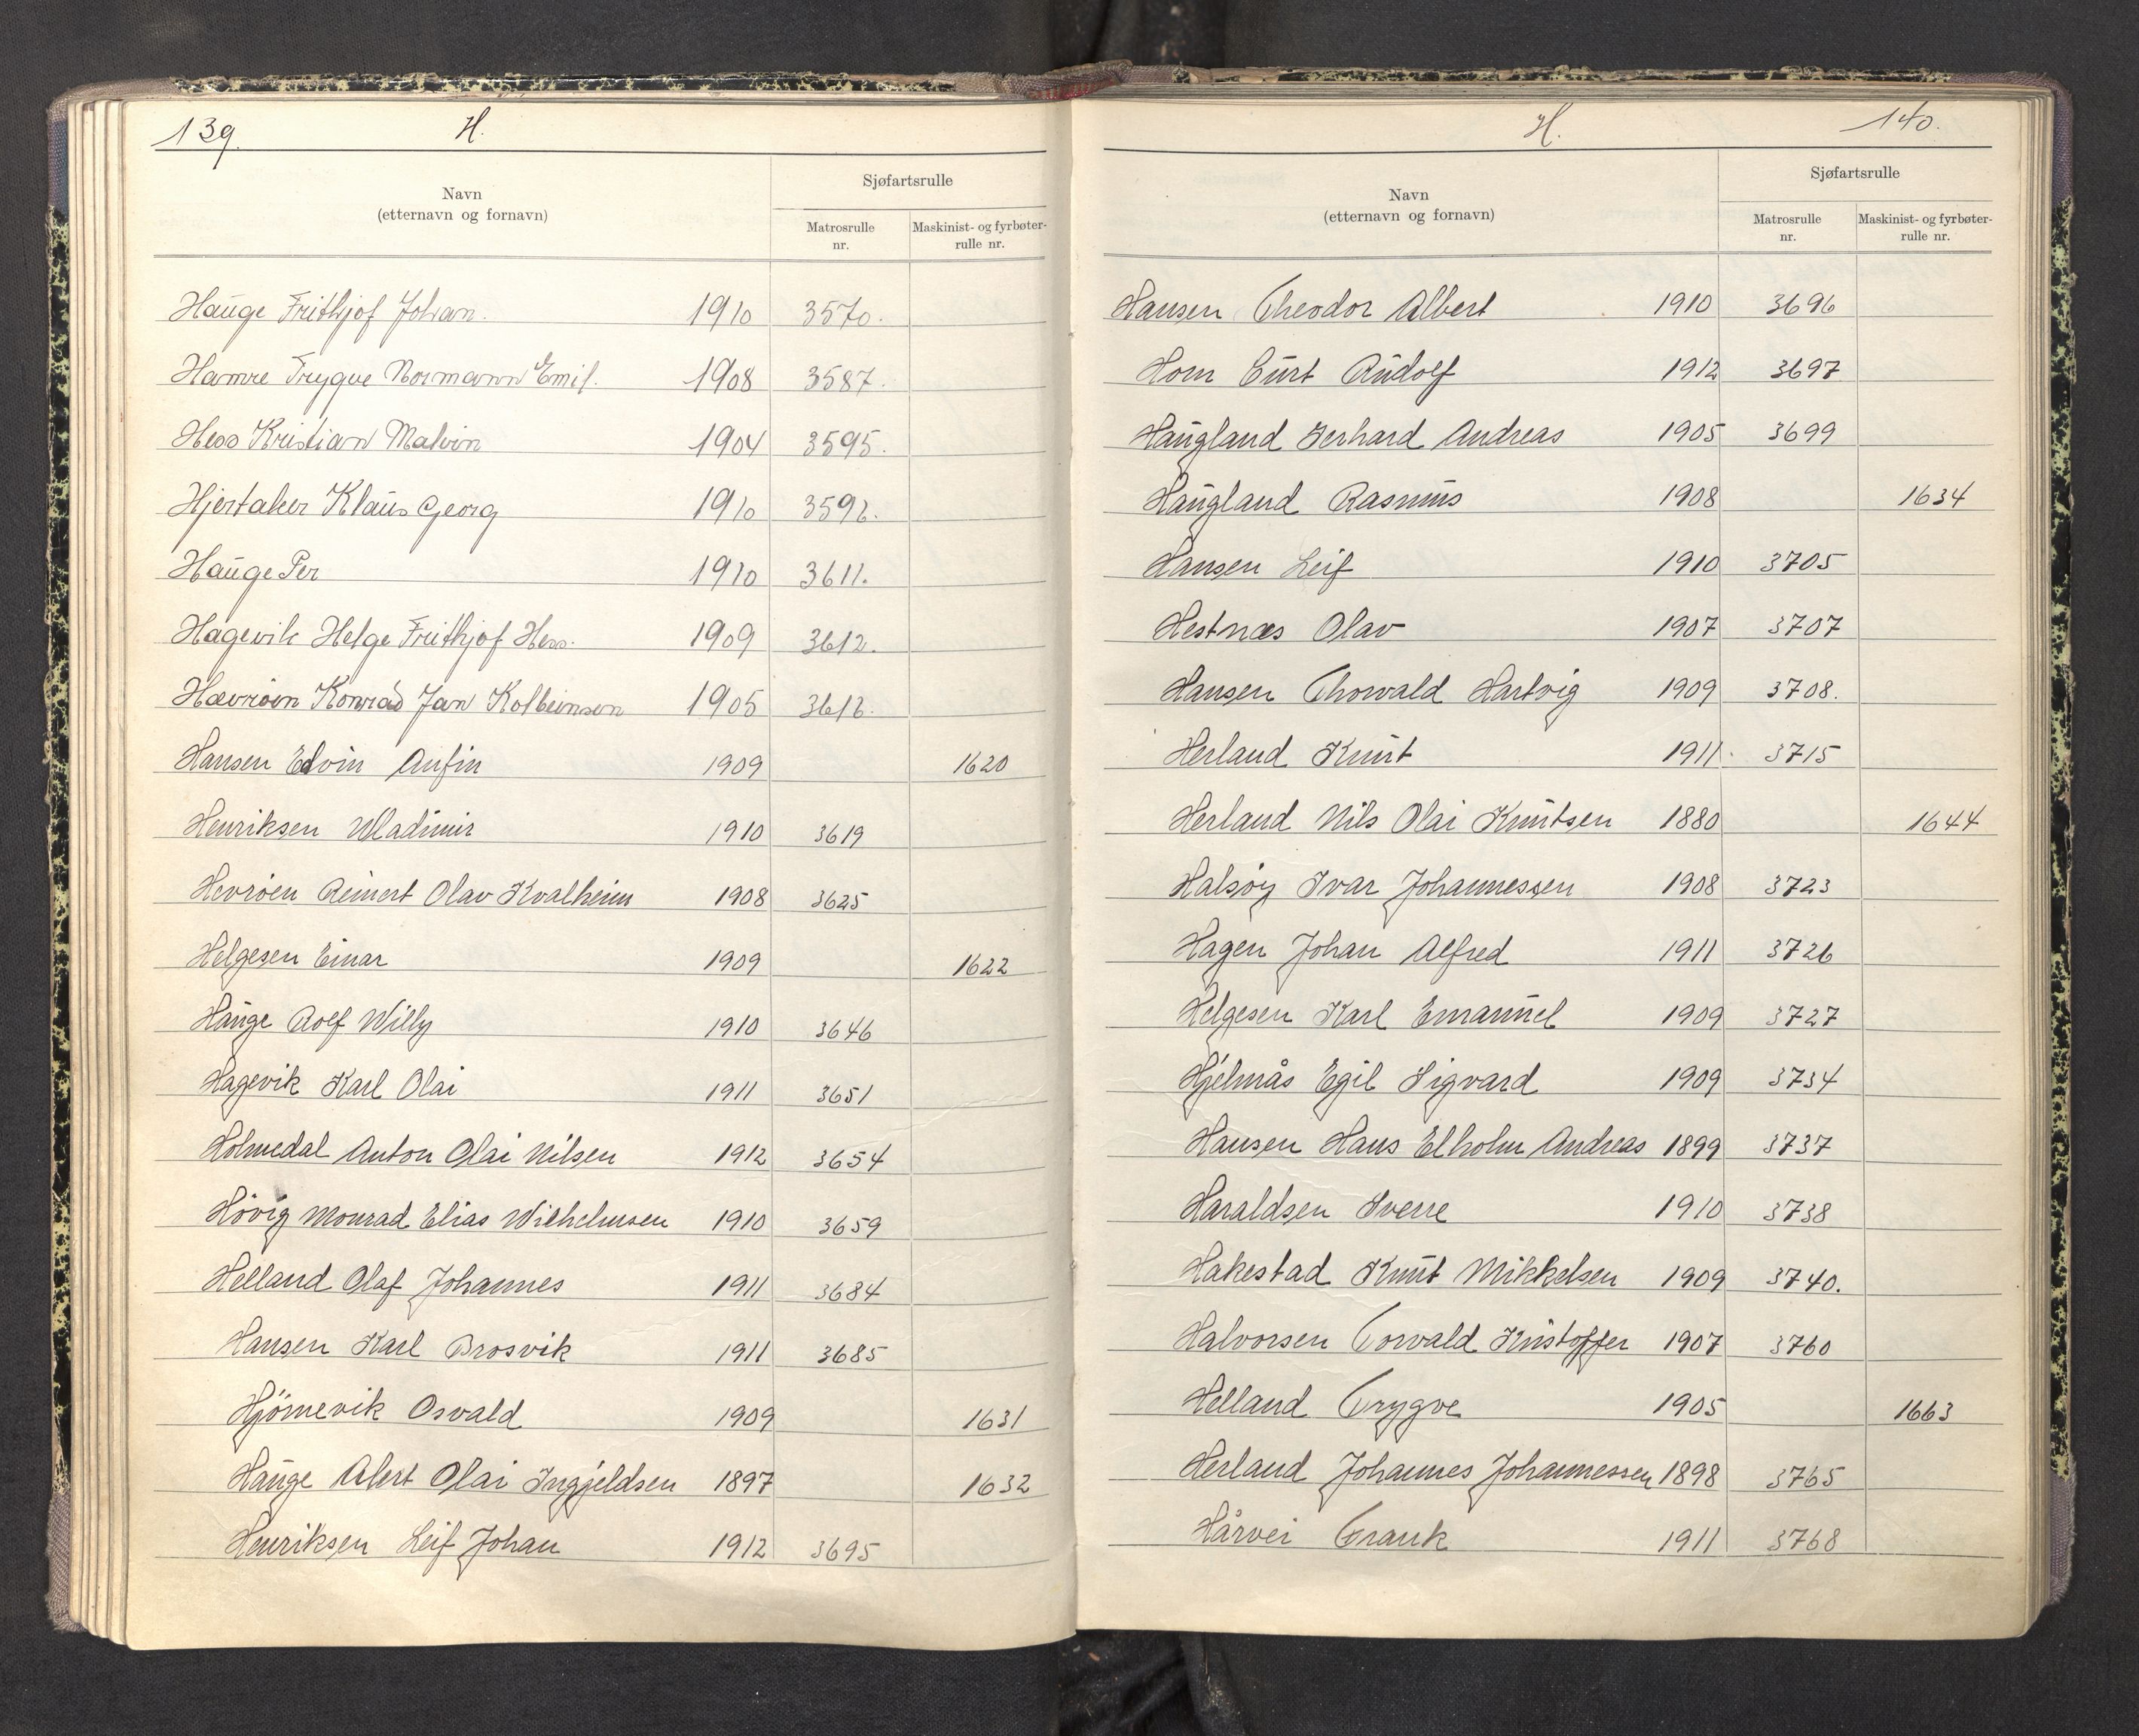 139. H.
Navn
(etternavn og fornavn)
Sjøfartsrulle
Matrosrulle
nr.
Maskinist- og fyrbøter-
rulle nr.
Hauge Frithjof Johan. 1910 3570.
Hamre Trygve Normann Emil. 1908 3587.
Hess Kristian Malvin 1904 3595.
Hjertaker Klaus Georg 1910
Hauge Per 1910 3611.
Hagevik Helge Frithjof Hess. 1909 3612.
Hævröen Konrad Jan Kolbeinsen 1905
Hansen Edvin Anfin 1909 1620
Henriksen Wladimir 1910 3619
Hevröen Reinert Olav Kvalheim 1908 3625
Helgesen Einar 1909 1622
Hauge Rolf Willy 1910 3646
Hagevik Karl Olai 1911 3651
Holmedal Anton Olai Nilsen 1912 3654
Hövig Monrad Elias Wilhelmsen 1910 3659
Helland Olaf Johannes 1911 3684
Hansen Karl Brosvik 1911 3685
Hjörnevik Osvald 1909 1631
Hauge Alert Olai Ingjeldsen 1897 1632
Henriksen Leif Johan 1912 3695
H. 140.
Navn
(etternavn og fornavn)
Sjøfartsrulle
Matrosrulle
nr.
Maskinist- og fyrbøter-
rulle nr.
Hansen Theodor Albert 1910 3696
Horn Curt Rudolf 1912 3697
Haugland Gerhard Andreas 1905 3699
Haugland Rasmus 1908 1634
Hansen Leif 1910 3705
Hestnæs Olav 1907 3707
Hansen Thorvald Hartvig 1909 3708.
Herland Knut 1911 3715
Herland Nils Olai Knutsen 1880 1644
Halsöy Ivar Johannessen 1908 3723
Hagen Johan Alfred 1911 3726
Helgesen Karl Emanuel 1909 3727
Hjelmås Egil Sigvard 1909 3734
Hansen Hans Elholm Andreas 1899 3737
Haraldsen Sverre 1910 3738
Hakestad Knut Mikkelsen 1909 3740.
Halvorsen Torvald Kristoffer 1907 3760
Helland Trygve 1905 1663
Herland Johannes Johannessen 1898 3765
Hårvei 1911 3768